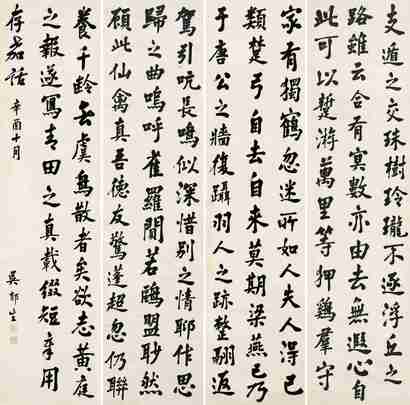 支遁之交珠樹玲瓏不逐浮丘之
路雖云合有冥數亦由去無遐心自
此可以蹔游萬里等狎鷄羣守
家有獨鶴忽迷所如人失人淂已
類楚弓自去自来莫期梁燕已乃
于唐公之牆復躡羽人之跡整翮返
駕引吭長鳴似深惜别之情聊作思
歸之曲嗚呼雀羅閴若鷗盟眇然
顧此仙禽真吾德友驚蓬超忽仍聯
養千齡去虞散者矣欲志黄庭
之報遂寫青田之真載綴短章用
存嘉話 辛酉十月 吴郁生